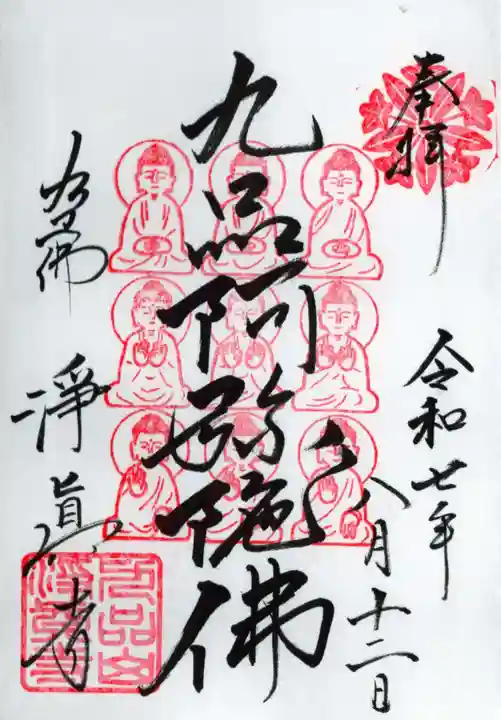 奉拝
令和七年
八月十二日
九品阿弥陀佛
九品佛
淨眞寺
九品山